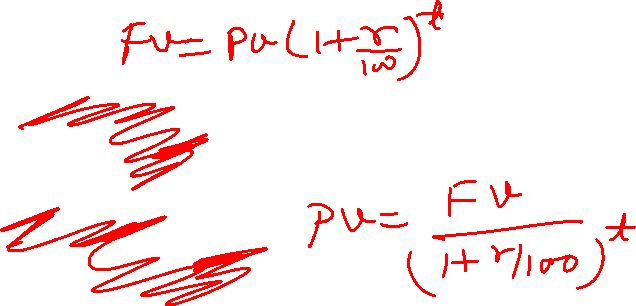 FV = PV (1 + r/100)^t
PV = FV/(1 + r/100)^t